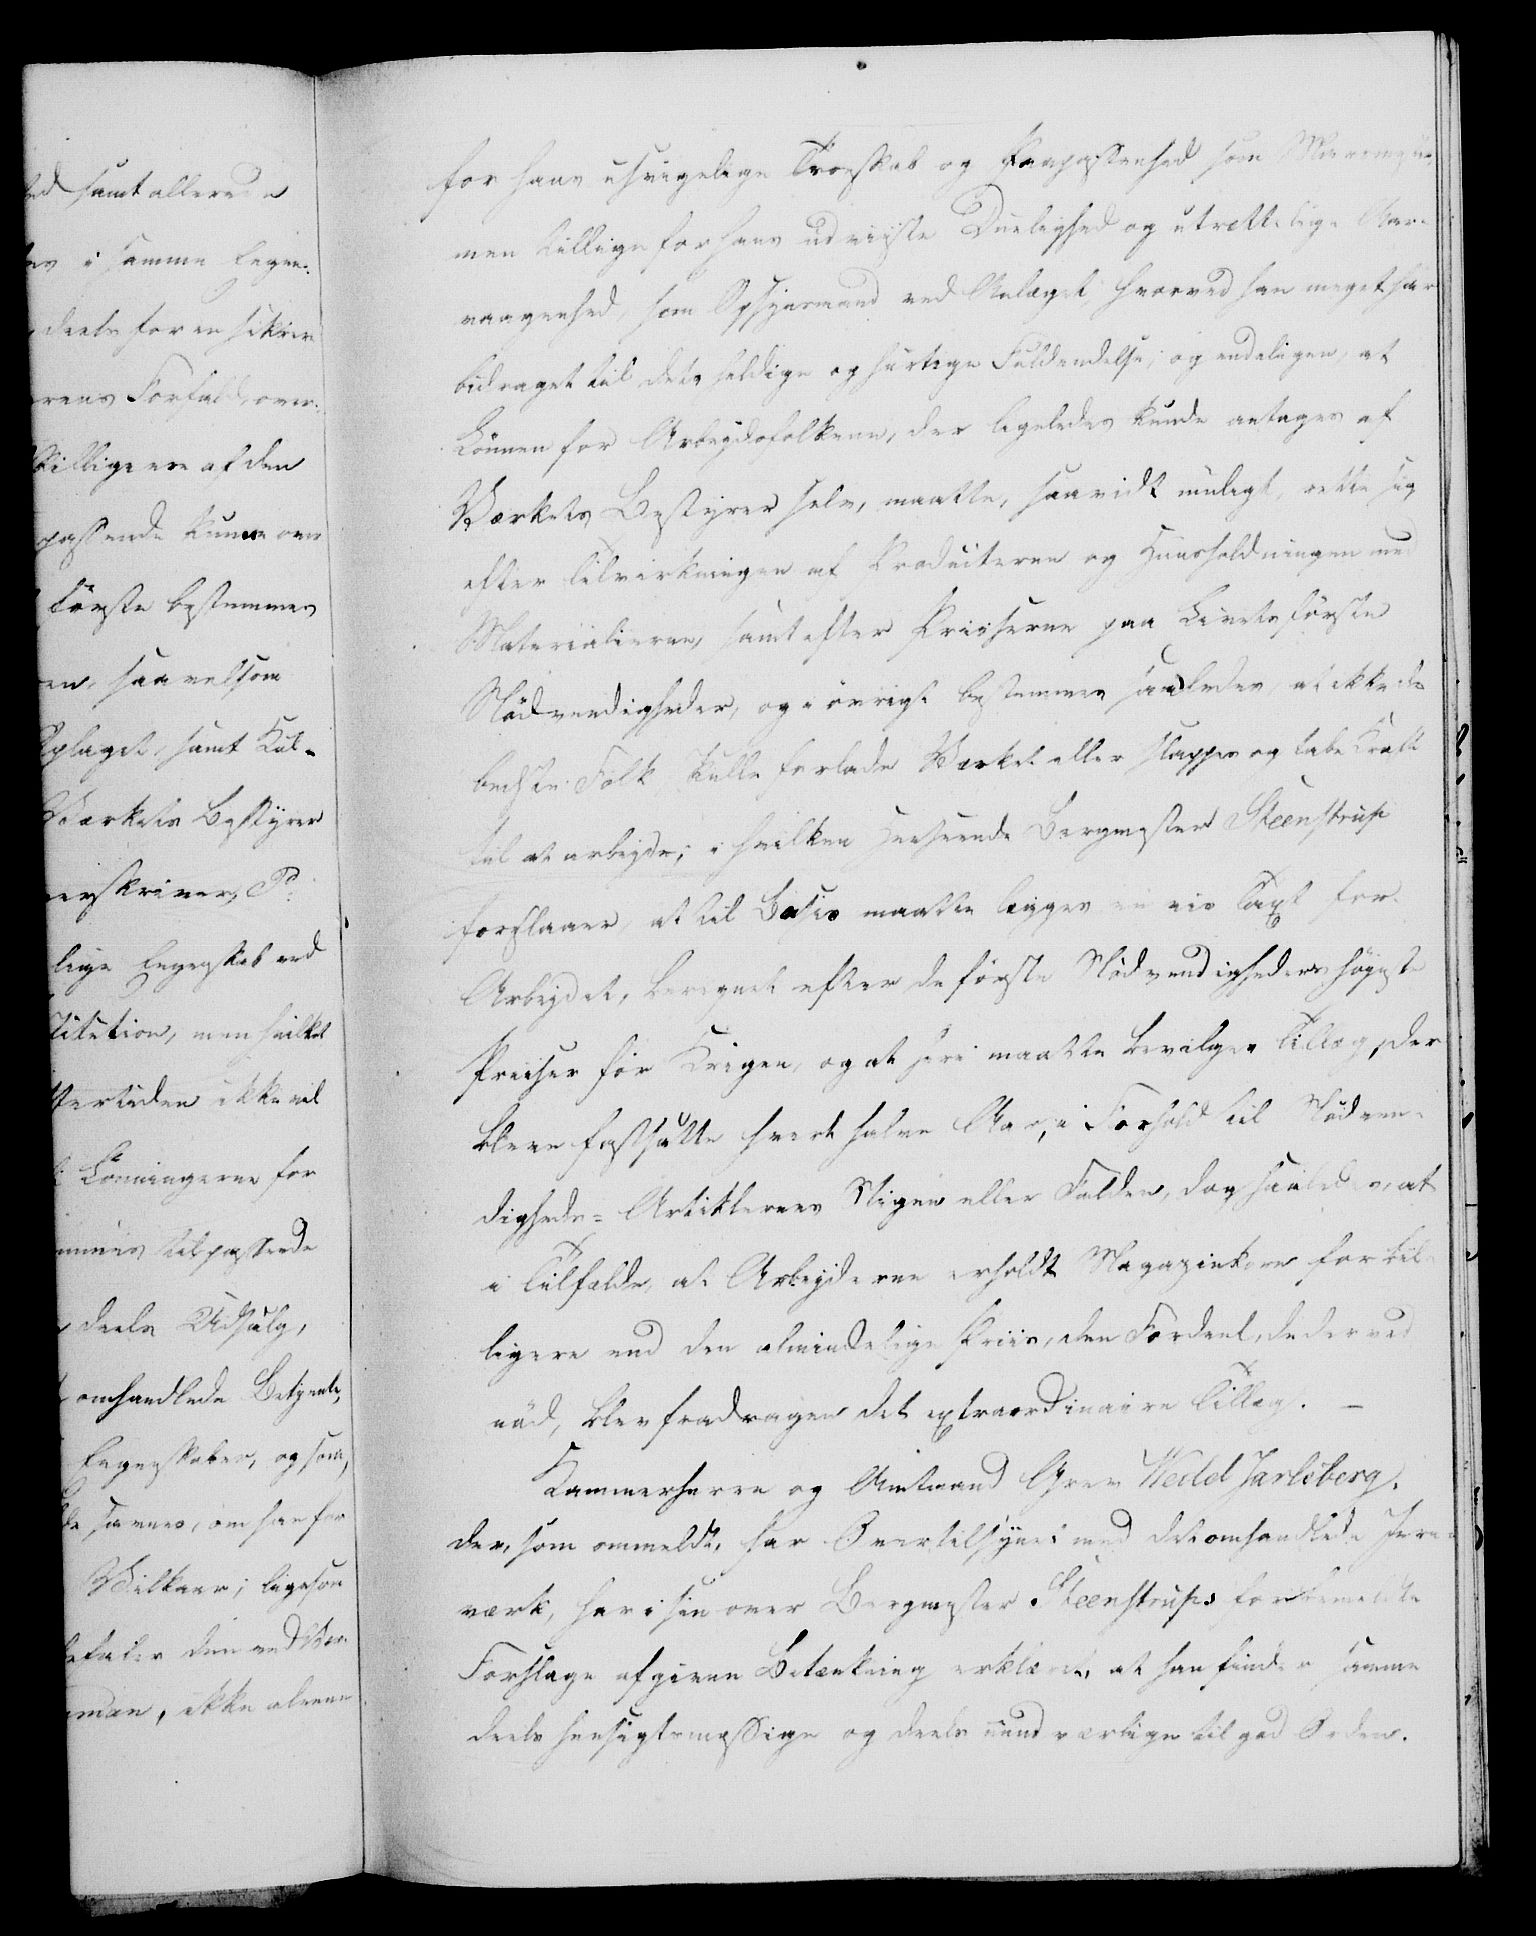 ed samt allerede
es i samme Egen-
deels for en sikker
rens Forfald, over-
billigere af den
passende kunne over
første bestemmes
en, saavelsom
Oplaget, samt Kul-
Værkets Bestyrer
erskriver, P:
lige Egenskab ved
titution, men hvilket
fortiden ikke vel
Lønningerne for
emmes tilpassede
deels Udsalg,
omhandlede Betjente,
Egenskaber, og som,
de savnes, om han for
Vilkaar; ligesom
befaler den ved Vær-
man, ikke alene
for hans usvigelige Troeskab og Paapassenhed som
men tillige for hans udviiste Duelighed og utrættelige Aar-
vaagenhed, som Opsynsmand ved Anlæget, hvorved han meget har
bidraget til dets heldige og hurtige Fuldendelse; og endeligen, at
Lønnen for Arbeydsfolkene, der ligeledes kunde antages af
Værkets Bestyrer selv, maatte, saavidt muligt, rette sig
efter Tilvirkningen af Producterne og Huusholdningen med
Materialierne, samt efter Priiserne paa Livets første
Nødvendigheder, og i øvrigt bestemmes saaledes, at ikke de
bedste Folk skulle forlade Værket eller slappes og tabe Kraft
til at arbejde; i hvilken Henseende Bergmester Steenstrup
forslaaer, at til Basis maatte lægges en vis Taxt for
Arbeydet, beregnet efter de første Nødvendigheders høyeste
Priiser før Krigen, og at heri maatte bevilges Tillæg, der
bleve fastsatte hvert halve Aar, i Forhold til Nødven-
digheds-Artiklernes Stigen eller Falden, dog saaledes, at
i Tilfælde, at Arbeyderne erholdt Magazinkorn for bil-
ligere end den almindelige Priis, den Fordeel, de derved
nød, blev fradragen det extraordinaire Tillæg. –
Kammerherre og Amtmand Grev Wedel Jarlsberg,
der, som ommeldt, har Overtilsynet med det omhandlede Jern-
værk, har i sin over Bergmester Steenstrups forbemeldte
Forslage afgivne Betænkning erklæret, at han finder samme
deels hensigtsmæssige og deels nødværlige til god Orden.